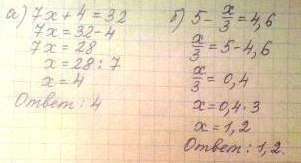 а) 7x + 4 = 32
7x = 32 - 4
7x = 28
x = 28 : 7
x = 4
Ответ : 4
б) 5 - x/3 = 4,6
x/3 = 5 - 4,6
x/3 = 0,4
x = 0,4 · 3
x = 1,2
Ответ : 1,2.